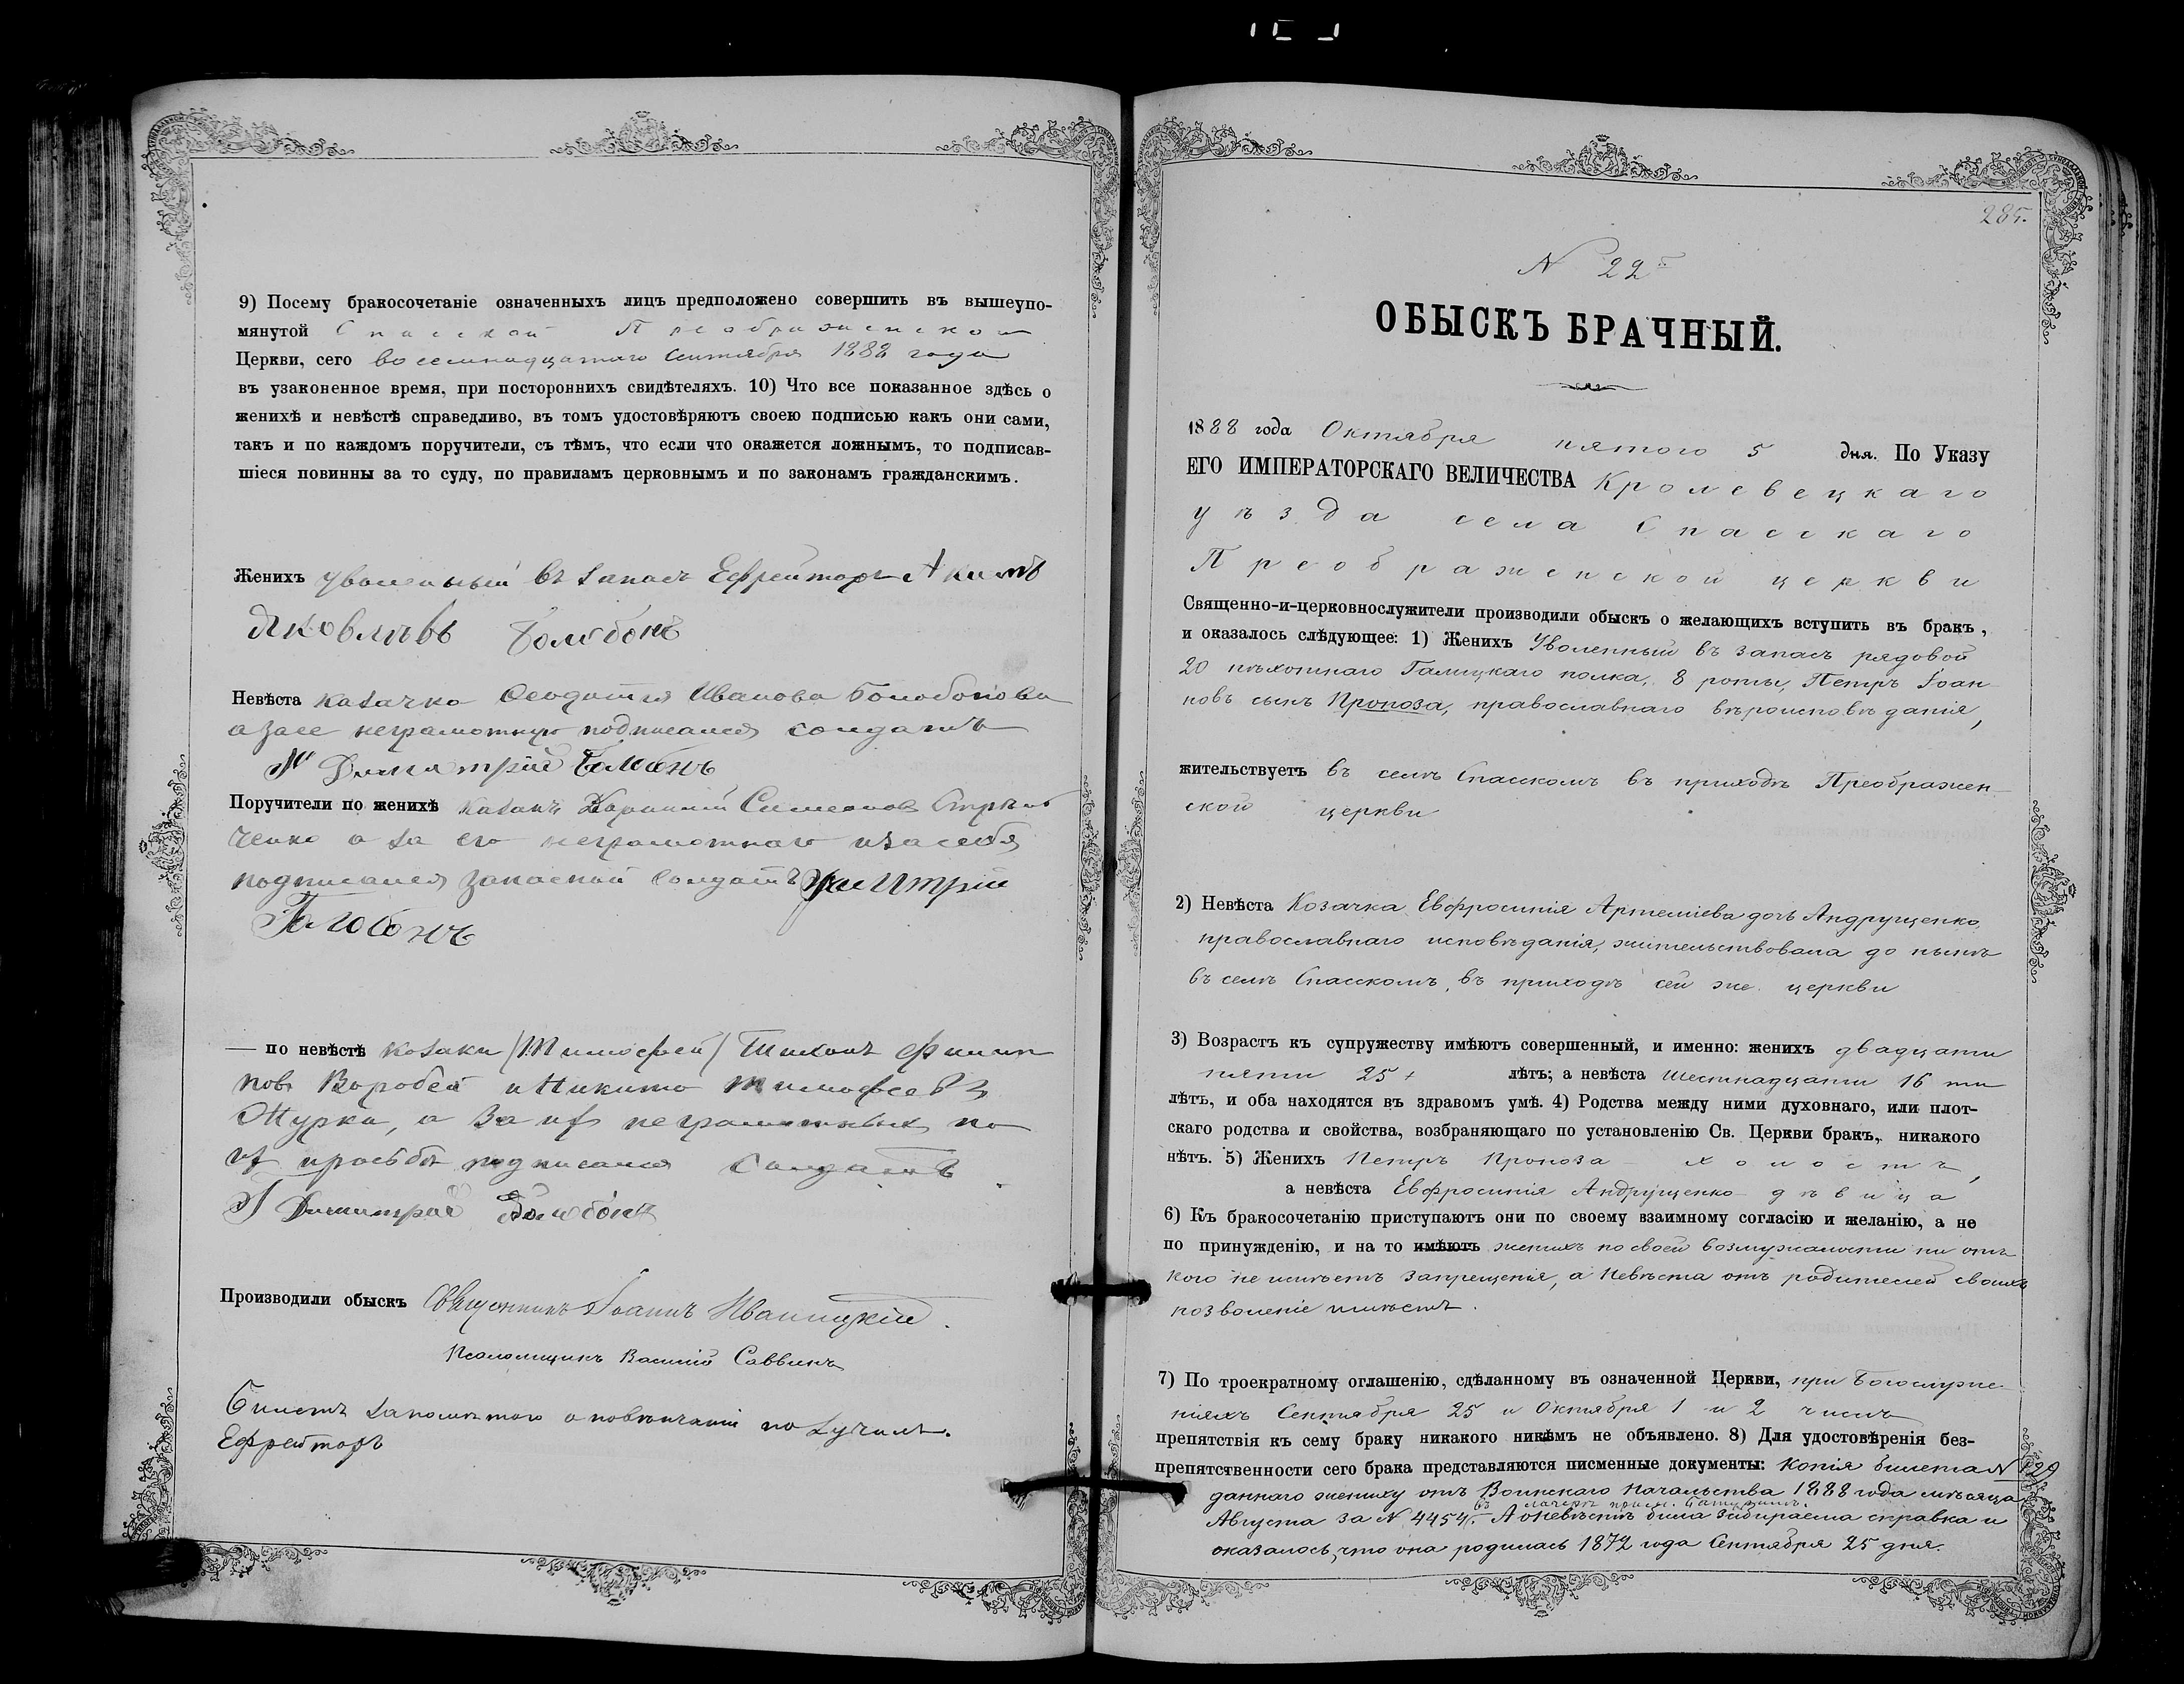 9) Посему бракосочетаніе означенныхъ лицъ предположено совершить въ вышеупо-
мянутой Спасской Преображенской
Церкви, сего восемнадцатаго Сентября 1888 года
въ узаконенное время, при постороннихъ свидѣтеляхъ. 10) Что все показанное здѣсь о
женихѣ и невѣстѣ справедливо, въ томъ удостовѣряютъ своею подписью какъ они сами,
такъ и по каждомъ поручители, съ тѣмъ, что если что окажется ложнымъ, то подписав-
шіеся повинны за то суду, по правиламъ церковнымъ и по законамъ гражданскимъ.
Женихъ уволеный въ запасъ Ефрейторъ Акимъ
Яковлевъ
Невѣста казачка Феодотия Иванова
а за ее неграмотную подписался солдатъ
Поручители по женихѣ казакъ Симеоновъ
ченко а за его неграмотнаго и за себя
подписался запасной солдатъ Димитрій
— по невѣстѣ козаки (Тимофей) Тихонъ Филип
повъ Воробей и Никита Тимофеевъ
Журка, а за их неграмотных по
их просьбѣ подписался солдатъ
Димитрий
Производили обыскъ Священникъ Іоаннъ Иваницкій.
Псаломщикъ Василій Саввинъ
Билетъ запольтого о повѣнчаніи получилъ.
Ефрейторъ
285.
N 22й
ОБЫСКЪ БРАЧНЫЙ.
1888 года Октября пятого 5 дня. По Указу
ЕГО ИМПЕРАТОРСКАГО ВЕЛИЧЕСТВА Кролевецкаго
уѣзда села Спасскаго
Преображенской церкви
Священно-и-церковнослужители производили обыскъ о желающихъ вступить въ бракъ,
и оказалось слѣдующее: 1) Женихъ Уволенный въ запасъ рядовой
20 пѣхотнаго Галицкаго полка, 8 роты, Петръ Іоан-
новъ сынъ Пропоза, православнаго вѣроисповѣданія,
жительствуетъ въ селѣ Спасскомъ въ приходѣ Преображен-
ской церкви
2) Невѣста Козачка Евфросинія Артеміева дочь Андрущенко,
православнаго исповѣданія, жительствовала до нынѣ
въ селѣ Спасскомъ, въ приходѣ сей же церкви
3) Возрастъ къ супружеству имѣютъ совершенный, и именно: женихъ двадцати
пяти 25 лѣтъ; а невѣста шестнадцати 16 ти
лѣтъ, и оба находятся въ здравомъ умѣ. 4) Родства между ними духовнаго, или плот-
скаго родства и свойства, возбраняющаго по установленію Св. Церкви бракъ, никакого
нѣтъ. 5) Женихъ Петръ Пропоза - холостъ,
а невѣста Евфросинія Андрущенко - дѣвица
6) Къ бракосочетанію приступаютъ они по своему взаимному согласію и желанію, а не
по принужденію, и на то имѣютъ женихъ по своей возмужалости ни отъ
кого не имѣетъ запрещенія, а невѣста отъ родителей своихъ
позволеніе имѣетъ.
7) По троекратному оглашенію, сдѣланному въ означенной Церкви, при Богослуже-
ніяхъ Сентября 25 и Октября 1 и 2 числъ
препятствія къ сему браку никакого никѣмъ не объявлено. 8) Для удостовѣренія без-
препятственности сего брака представляются писменные документы: Копія билета N 129
даннаго жениху отъ Воинскаго Начальства 1888 года мѣсяца
Августа за N 4454. А о невѣстѣ была забираема справка и
оказалось, что она родилась 1872 года Сентября 25 дня.